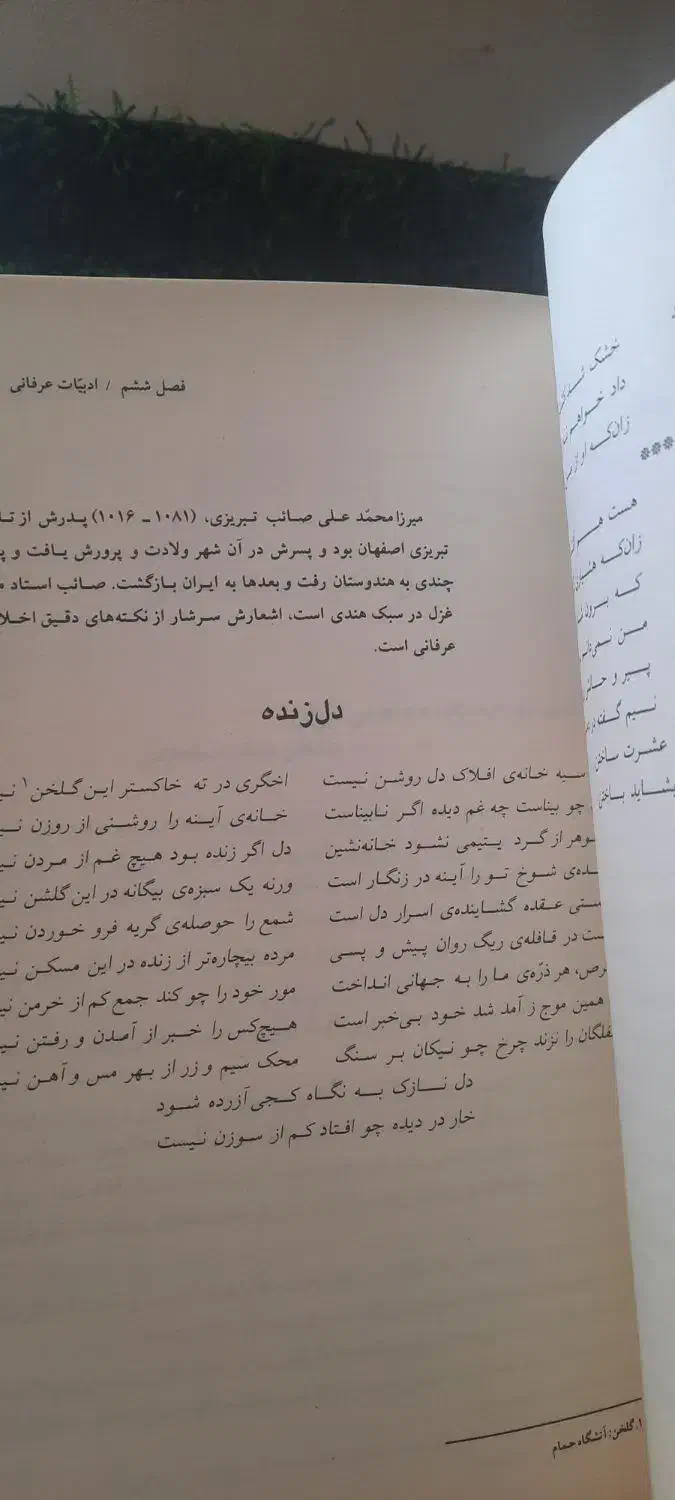 فصل ششم / ادبیّات عرفانی
میرزا محمّد علی صائب تبریزی، (۱۰۸۱ ـ ۱۰۱۶) پدرش از
تبریزی اصفهان بود و پسرش در آن شهر ولادت و پرورش یافت و
چندی به هندوستان رفت و بعدها به ایران بازگشت. صائب استاد
غزل در سبک هندی است، اشعارش سرشار از نکته‌های دقیق
عرفانی است.
دل زنده
سیه خانه‌ی افلاک دل روشن نیست اخگری در ته خاکستر این گلخن۱
چو بیناست چه غم دیده اگر نابیناست خانه‌ی آینه را روشنی از روزن
از گرد یتیمی نشود خانه‌نشین دل اگر زنده بود هیچ غم از مردن
شوخ تو را آینه در زنگار است ورنه یک سبزه‌ی بیگانه در این گلشن
عقده گشاینده‌ی اسرار دل است شمع را حوصله‌ی گریه فرو خوردن
در قافله‌ی ریگ روان پیش و پسی مرده بیچاره‌تر از زنده در این مسکن
هر ذرّه‌ی ما را به جهانی انداخت مور خود را چو کند جمع کم از خرمن
همین موج ز آمد شد خود بی‌خبر است هیچ‌کس را خبر از آمدن و رفتن
را نزند چرخ چو نیکان بر سنگ محک سیم و زر از بهر مس و آهن
دل نازک به نگاه کجی آزرده شود
خار در دیده چو افتاد کم از سوزن نیست
۱. گلخن: آتشگاه حمام
خشک
داد
زان‌که او از
***
هست
زان‌که
که بیرون
من
پیر و
نیم گفت
عشرت ساختن
باختن